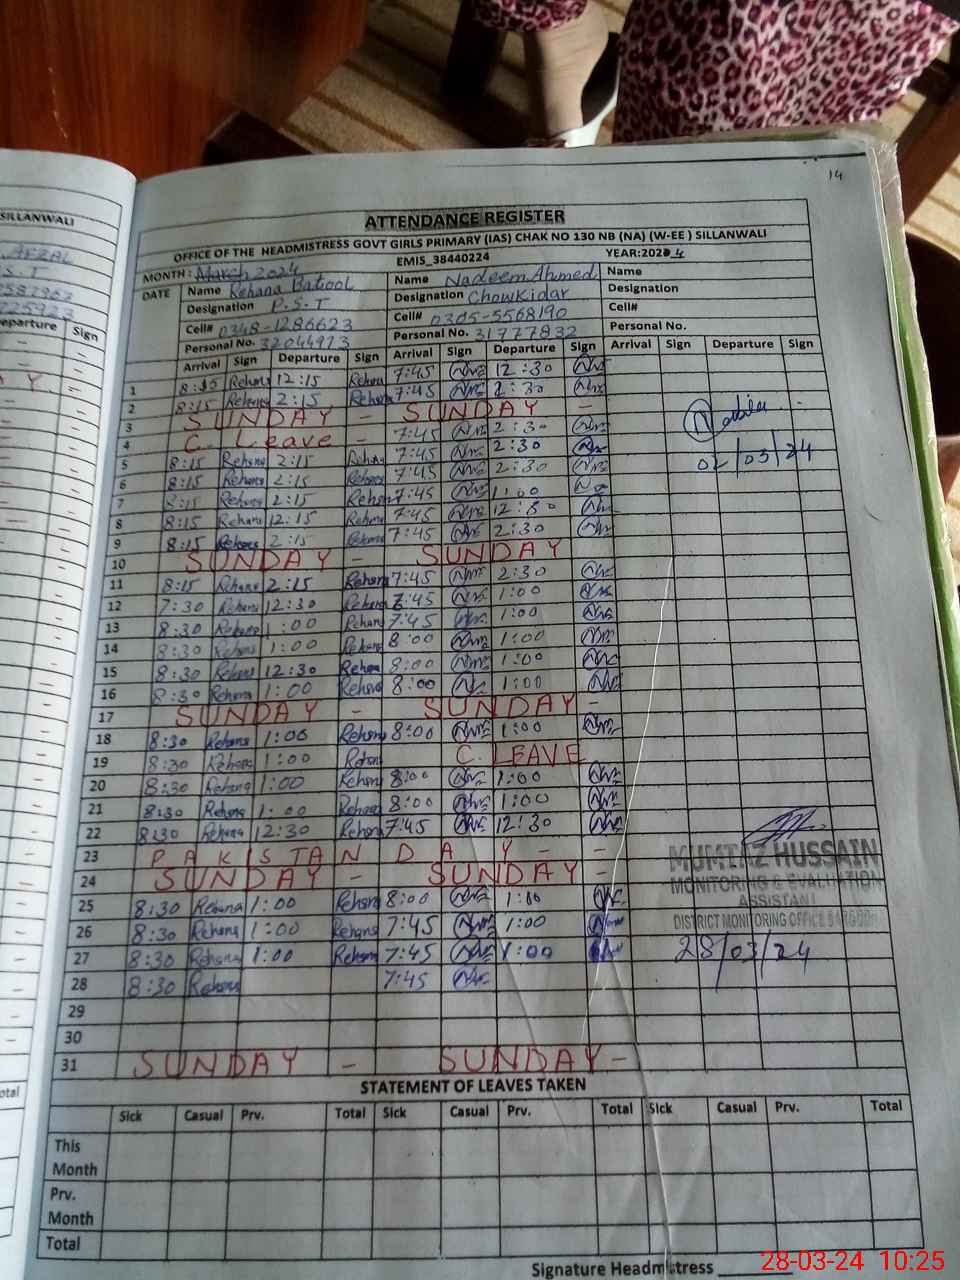 14
SILLANWALI
ATTENDANCE REGISTER
OFFICE OF THE HEADMISTRESS GOVT GIRLS PRIMARY (IAS) CHAK NO 130 NB (NA) (W-EE ) SILLANWALI
MONTH : March 2024 EMIS_38440224 YEAR:2024
DATE Name Rehana Batool Name Nadeem Ahmed Name
Designation P.S.T Designation Chowkidar Designation
Cell# 0348-1286623 Cell# 0305-5568190 Cell#
Personal No. 32044973 Personal No. 31777832 Personal No.
Arrival Sign Departure Sign Arrival Sign Departure Sign Arrival Sign Departure Sign
1 8:15 Rehana 12:15 Rehana 7:45 12:30
2 8:15 Rehana 2:15 Rehana 7:45 2:30
3 SUNDAY - SUNDAY -
4 C. Leave - 7:45 2:30
5 8:15 Rehana 2:15 Rehana 7:45 2:30
02/03/24
6 8:15 Rehana 2:15 Rehana 7:45 2:30
7 8:15 Rehana 2:15 Rehana 7:45 1:00
8 8:15 Rehana 12:15 Rehana 7:45 12:30
9 8:15 Rehana 2:15 Rehana 7:45 2:30
10 SUNDAY - SUNDAY
11 8:15 Rehana 2:15 Rehana 7:45 2:30
12 7:30 Rehana 12:30 Rehana 7:45 1:00
13 8:30 Rehana 1:00 Rehana 7:45 1:00
14 8:30 Rehana 1:00 Rehana 8:00 1:00
15 8:30 Rehana 12:30 Rehana 8:00 1:00
16 8:30 Rehana 1:00 Rehana 8:00 1:00
17 SUNDAY - SUNDAY -
18 8:30 Rehana 1:00 Rehana 8:00 1:00
19 8:30 Rehana 1:00 Rehana C. LEAVE
20 8:30 Rehana 1:00 Rehana 8:00 1:00
21 8:30 Rehana 1:00 Rehana 8:00 1:00
22 8:30 Rehana 12:30 Rehana 7:45 12:30
23 PAKISTAN DAY - -
24 SUNDAY - SUNDAY -
MUMTAZ HUSSAIN
MONITORING & EVALUATION
ASSISTANT
DISTRICT MONITORING OFFICE SARGODHA
25 8:30 Rehana 1:00 Rehana 8:00 1:00
26 8:30 Rehana 1:00 Rehana 7:45 1:00
27 8:30 Rehana 1:00 Rehana 7:45 1:00
28/03/24
28 8:30 Rehana 7:45
29
30
31 SUNDAY - SUNDAY -
STATEMENT OF LEAVES TAKEN
Sick Casual Prv. Total Sick Casual Prv. Total Sick Casual Prv. Total
This
Month
Prv.
Month
Total
Signature Headmistress
28-03-24 10:25